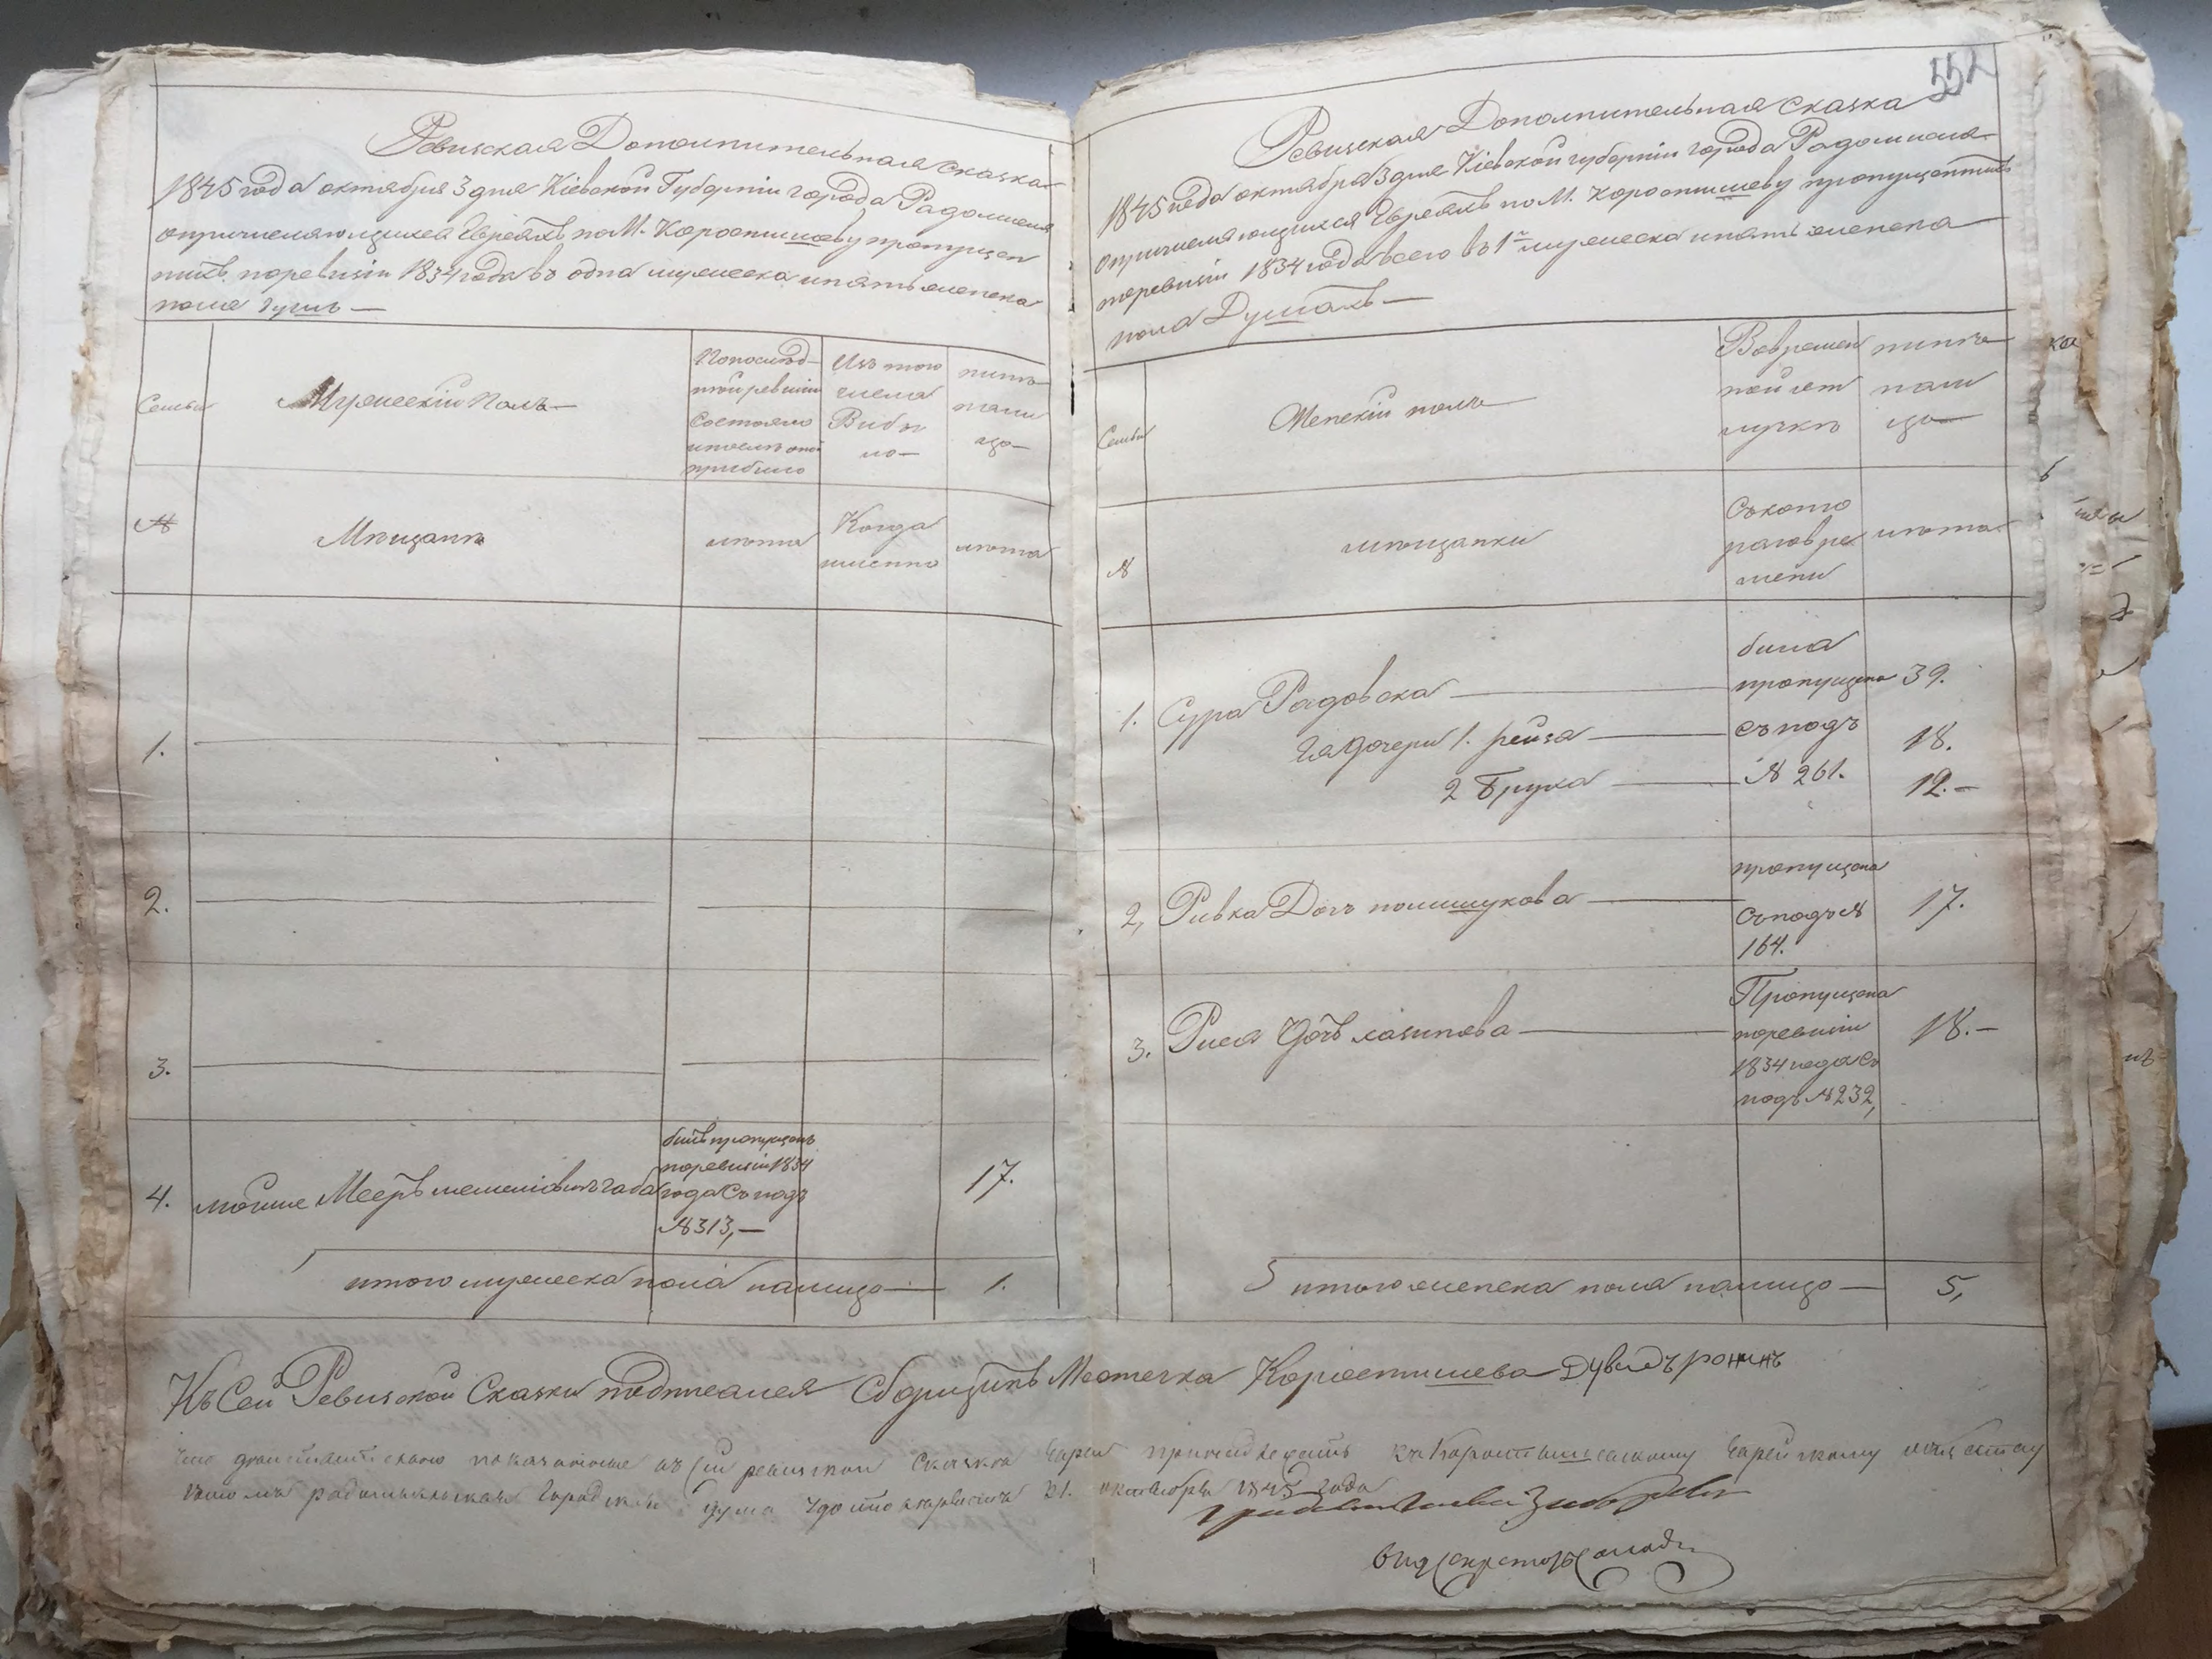 Ревизская Дополнительная сказка
1845 года октября 3 дня Кіевской Губерніи города Радомисля
о причисляющихся Евреяхъ по М. Коростишеву пропущен
ныхъ поревизіи 1834 года въ одна мужеска и пять женска
пола душъ —
Семьи
Мужескій Полъ —
Попослѣд-
ней ревизіи
Состояло
и послѣ оной
прибыло
Изъ того
числа
Выбы
ло —
нынѣ
нали
цо —
№
Мѣщане
лѣта
Когда
именно
лѣта
1.
2.
3.
4. мошие Мееръ
былъ пропущенъ
поревизіи 1834
года Съ подъ
№ 313, —
17.
итого мужеска пола налицо — 1.
552
Ревизская Дополнительная сказка
1845 года октября 3 дня Кіевской губерніи города Радомисля
о причисляющихся Евреяхъ по М. Коростишеву пропущенныхъ
поревизіи 1834 года всего въ 1й мужеска и пять женска
пола Душахъ —
Семьи
Женскій полъ
Вовремен
ной от
лучкѣ
нынѣ
нали
цо —
№
мѣщанки
Съ кото
раго вре
мени
лѣта
1. Сура Радовска
Ея Дочери 1. рейза
2 Бруха
была
пропущена
съ подъ
№ 261.
39.
18.
12. —
2, Ривка Дочь полишукова
пропущена
съ подъ №
164.
17.
3. Рися Дочь лазинова
Пропущена
поревизіи
1834 года Съ
подъ № 232,
18. —
итого женска пола налицо — 5,
Къ Сей Ревизской Сказки подписался Сборщикъ Местечка Коростишева Дувидъ ронинъ
что действительно показанные въ сей ревизской Сказки Евреи принадлежатъ къ Коростышевскому Еврейскому обществу
въ томъ радомысльская Городская дума удостоверяетъ 21. октября 1845 года